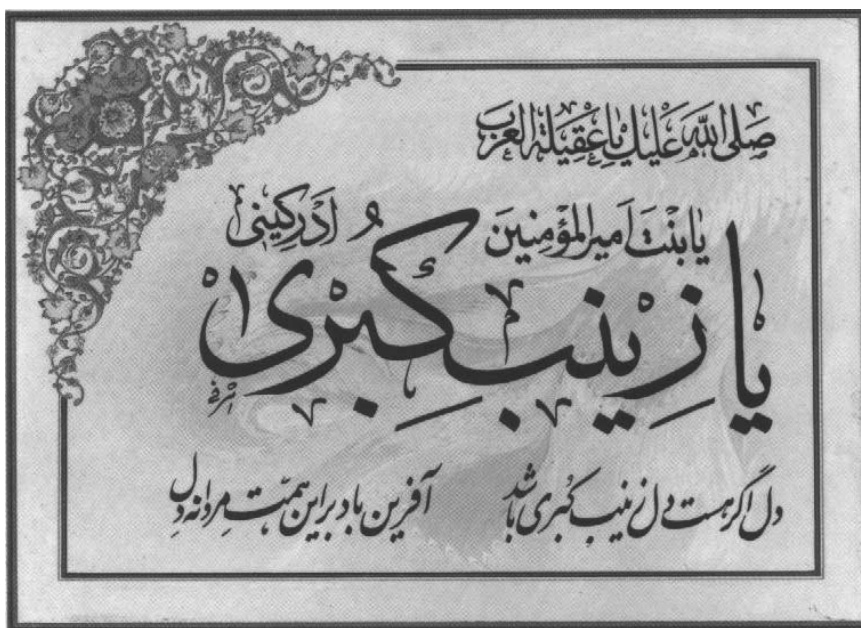 صَلَّی اللّٰهُ عَلَیْكِ یٰا عَقِیلَةَ الْعَرَبِ
یٰا بِنْتَ اَمیرِالْمُؤْمِنینَ اَدْرِکینی
یا زینب کِبُریٰ
دل اگر هست دل زینب کبری باشد آفرین باد براین همّت مردانه دل